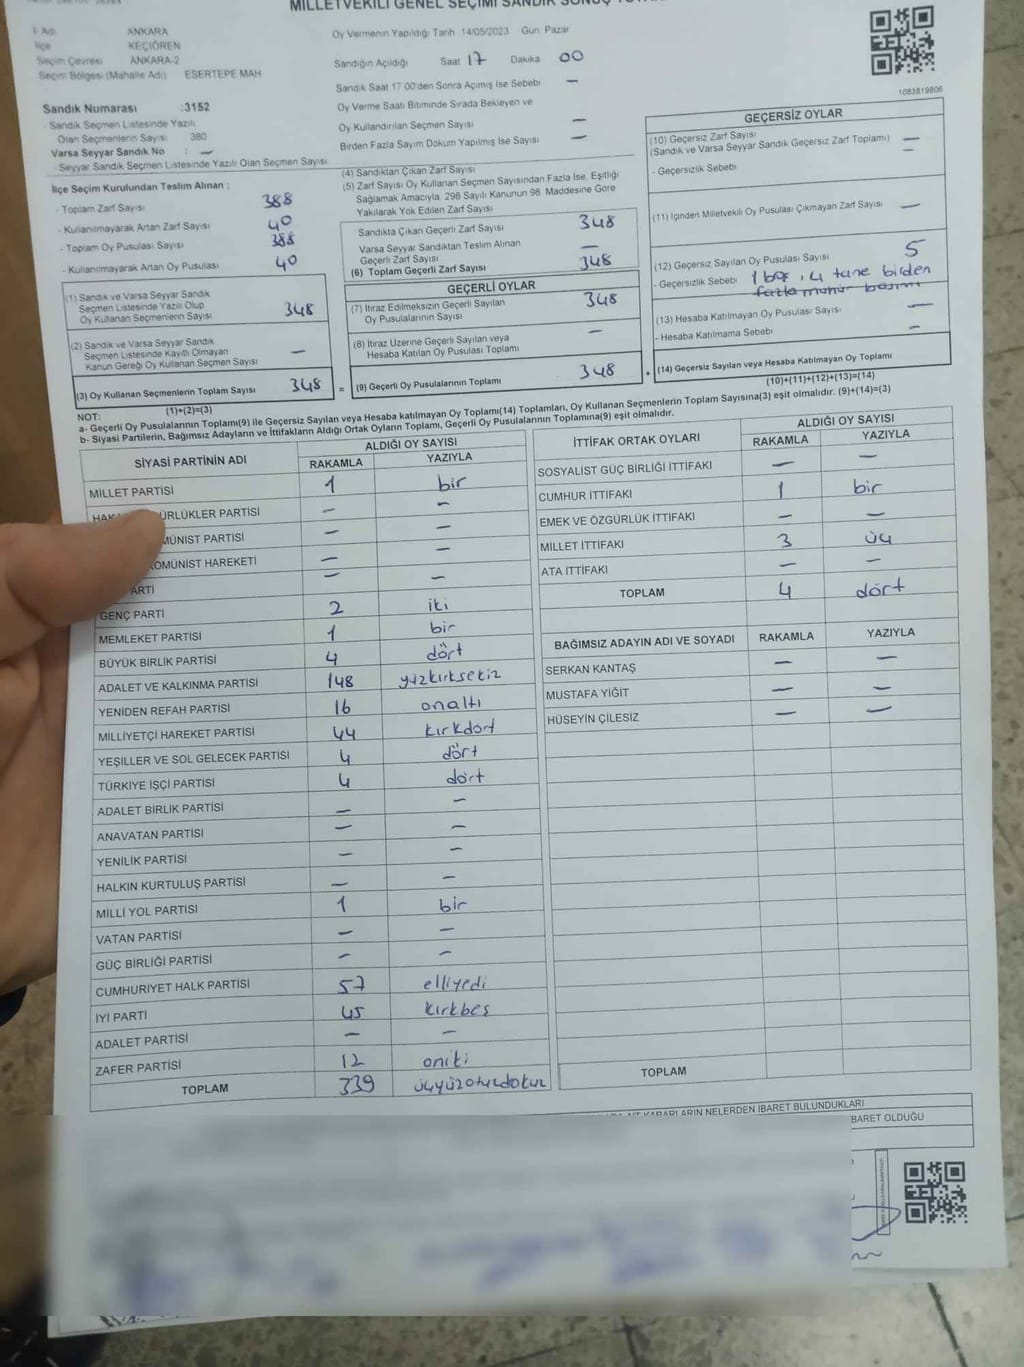 MİLLETVEKİLİ GENEL SEÇİMİ SANDIK SONUÇ
İl Adı ANKARA
İlçe KEÇİÖREN
Seçim Çevresi ANKARA-2
Seçim Bölgesi (Mahalle Adı) ESERTEPE MAH
Oy Vermenin Yapıldığı Tarih 14/05/2023 Gün. Pazar
Sandığın Açıldığı Saat 17 Dakika 00
Sandık Saat 17:00'den Sonra Açımış İse Sebebi —
Oy Verme Saati Bitiminde Sırada Bekleyen ve
Oy Kullandırılan Seçmen Sayısı —
Birden Fazla Sayım Döküm Yapılmış İse Sayısı —
1083819806
Sandık Numarası :3152
- Sandık Seçmen Listesinde Yazılı
Olan Seçmenlerin Sayısı 380
Varsa Seyyar Sandık No : —
- Seyyar Sandık Seçmen Listesinde Yazılı Olan Seçmen Sayısı
İlçe Seçim Kurulundan Teslim Alınan :
- Toplam Zarf Sayısı 388
- Kullanılmayarak Artan Zarf Sayısı 40
- Toplam Oy Pusulası Sayısı 388
- Kullanılmayarak Artan Oy Pusulası 40
(1) Sandık ve Varsa Seyyar Sandık
Seçmen Listesinde Yazılı Olup
Oy Kullanan Seçmenlerin Sayısı 348
(2) Sandık ve Varsa Seyyar Sandık
Seçmen Listesinde Kayıtlı Olmayan
Kanun Gereği Oy Kullanan Seçmen Sayısı —
(3) Oy Kullanan Seçmenlerin Toplam Sayısı 348 =
(1)+(2)=(3)
(4) Sandıktan Çıkan Zarf Sayısı
(5) Zarf Sayısı Oy Kullanan Seçmen Sayısından Fazla İse, Eşitliği
Sağlamak Amacıyla, 298 Sayılı Kanunun 98. Maddesine Göre
Yakılarak Yok Edilen Zarf Sayısı
Sandıkta Çıkan Geçerli Zarf Sayısı 348
Varsa Seyyar Sandıktan Teslim Alınan
Geçerli Zarf Sayısı —
(6) Toplam Geçerli Zarf Sayısı 348
GEÇERLİ OYLAR
(7) İtiraz Edilmeksizin Geçerli Sayılan
Oy Pusulalarının Sayısı 348
(8) İtiraz Üzerine Geçerli Sayılan veya
Hesaba Katılan Oy Pusulası Toplamı —
(9) Geçerli Oy Pusulalarının Toplamı 348 +
GEÇERSİZ OYLAR
(10) Geçersiz Zarf Sayısı —
(Sandık ve Varsa Seyyar Sandık Geçersiz Zarf Toplamı) —
- Geçersizlik Sebebi
(11) İçinden Milletvekili Oy Pusulası Çıkmayan Zarf Sayısı —
(12) Geçersiz Sayılan Oy Pusulası Sayısı 5
- Geçersizlik Sebebi 1 boş, 4 tane birden
fazla mühür basımı
(13) Hesaba Katılmayan Oy Pusulası Sayısı —
- Hesaba Katılmama Sebebi —
(14) Geçersiz Sayılan veya Hesaba Katılmayan Oy Toplamı
(10)+(11)+(12)+(13)=(14)
NOT:
a- Geçerli Oy Pusulalarının Toplamı(9) ile Geçersiz Sayılan veya Hesaba katılmayan Oy Toplamı(14) Toplamları, Oy Kullanan Seçmenlerin Toplam Sayısına(3) eşit olmalıdır. (9)+(14)=(3)
b- Siyasi Partilerin, Bağımsız Adayların ve İttifakların Aldığı Ortak Oyların Toplamı, Geçerli Oy Pusulalarının Toplamına(9) eşit olmalıdır.
SİYASİ PARTİNİN ADI ALDIĞI OY SAYISI
RAKAMLA YAZIYLA
MİLLET PARTİSİ 1 bir
HAK ÜRLÜKLER PARTİSİ — —
MÜNİST PARTİSİ — —
KOMÜNİST HAREKETİ — —
ARTİ — —
GENÇ PARTİ 2 iki
MEMLEKET PARTİSİ 1 bir
BÜYÜK BİRLİK PARTİSİ 4 dört
ADALET VE KALKINMA PARTİSİ 148 yüzkırksekiz
YENİDEN REFAH PARTİSİ 16 onaltı
MİLLİYETÇİ HAREKET PARTİSİ 44 kırkdört
YEŞİLLER VE SOL GELECEK PARTİSİ 4 dört
TÜRKİYE İŞÇİ PARTİSİ 4 dört
ADALET BİRLİK PARTİSİ — —
ANAVATAN PARTİSİ — —
YENİLİK PARTİSİ — —
HALKIN KURTULUŞ PARTİSİ — —
MİLLİ YOL PARTİSİ 1 bir
VATAN PARTİSİ — —
GÜÇ BİRLİĞİ PARTİSİ — —
CUMHURİYET HALK PARTİSİ 57 elliyedi
İYİ PARTİ 45 kırkbeş
ADALET PARTİSİ — —
ZAFER PARTİSİ 12 oniki
TOPLAM 339 üçyüzotuzdokuz
İTTİFAK ORTAK OYLARI ALDIĞI OY SAYISI
RAKAMLA YAZIYLA
SOSYALİST GÜÇ BİRLİĞİ İTTİFAKI — —
CUMHUR İTTİFAKI 1 bir
EMEK VE ÖZGÜRLÜK İTTİFAKI — —
MİLLET İTTİFAKI 3 üç
ATA İTTİFAKI — —
TOPLAM 4 dört
BAĞIMSIZ ADAYIN ADI VE SOYADI RAKAMLA YAZIYLA
SERKAN KANTAŞ — —
MUSTAFA YİĞİT — —
HÜSEYİN ÇİLESİZ — —
TOPLAM
KARARLARIN NELERDEN İBARET BULUNDUKLARI
BARET OLDUĞU